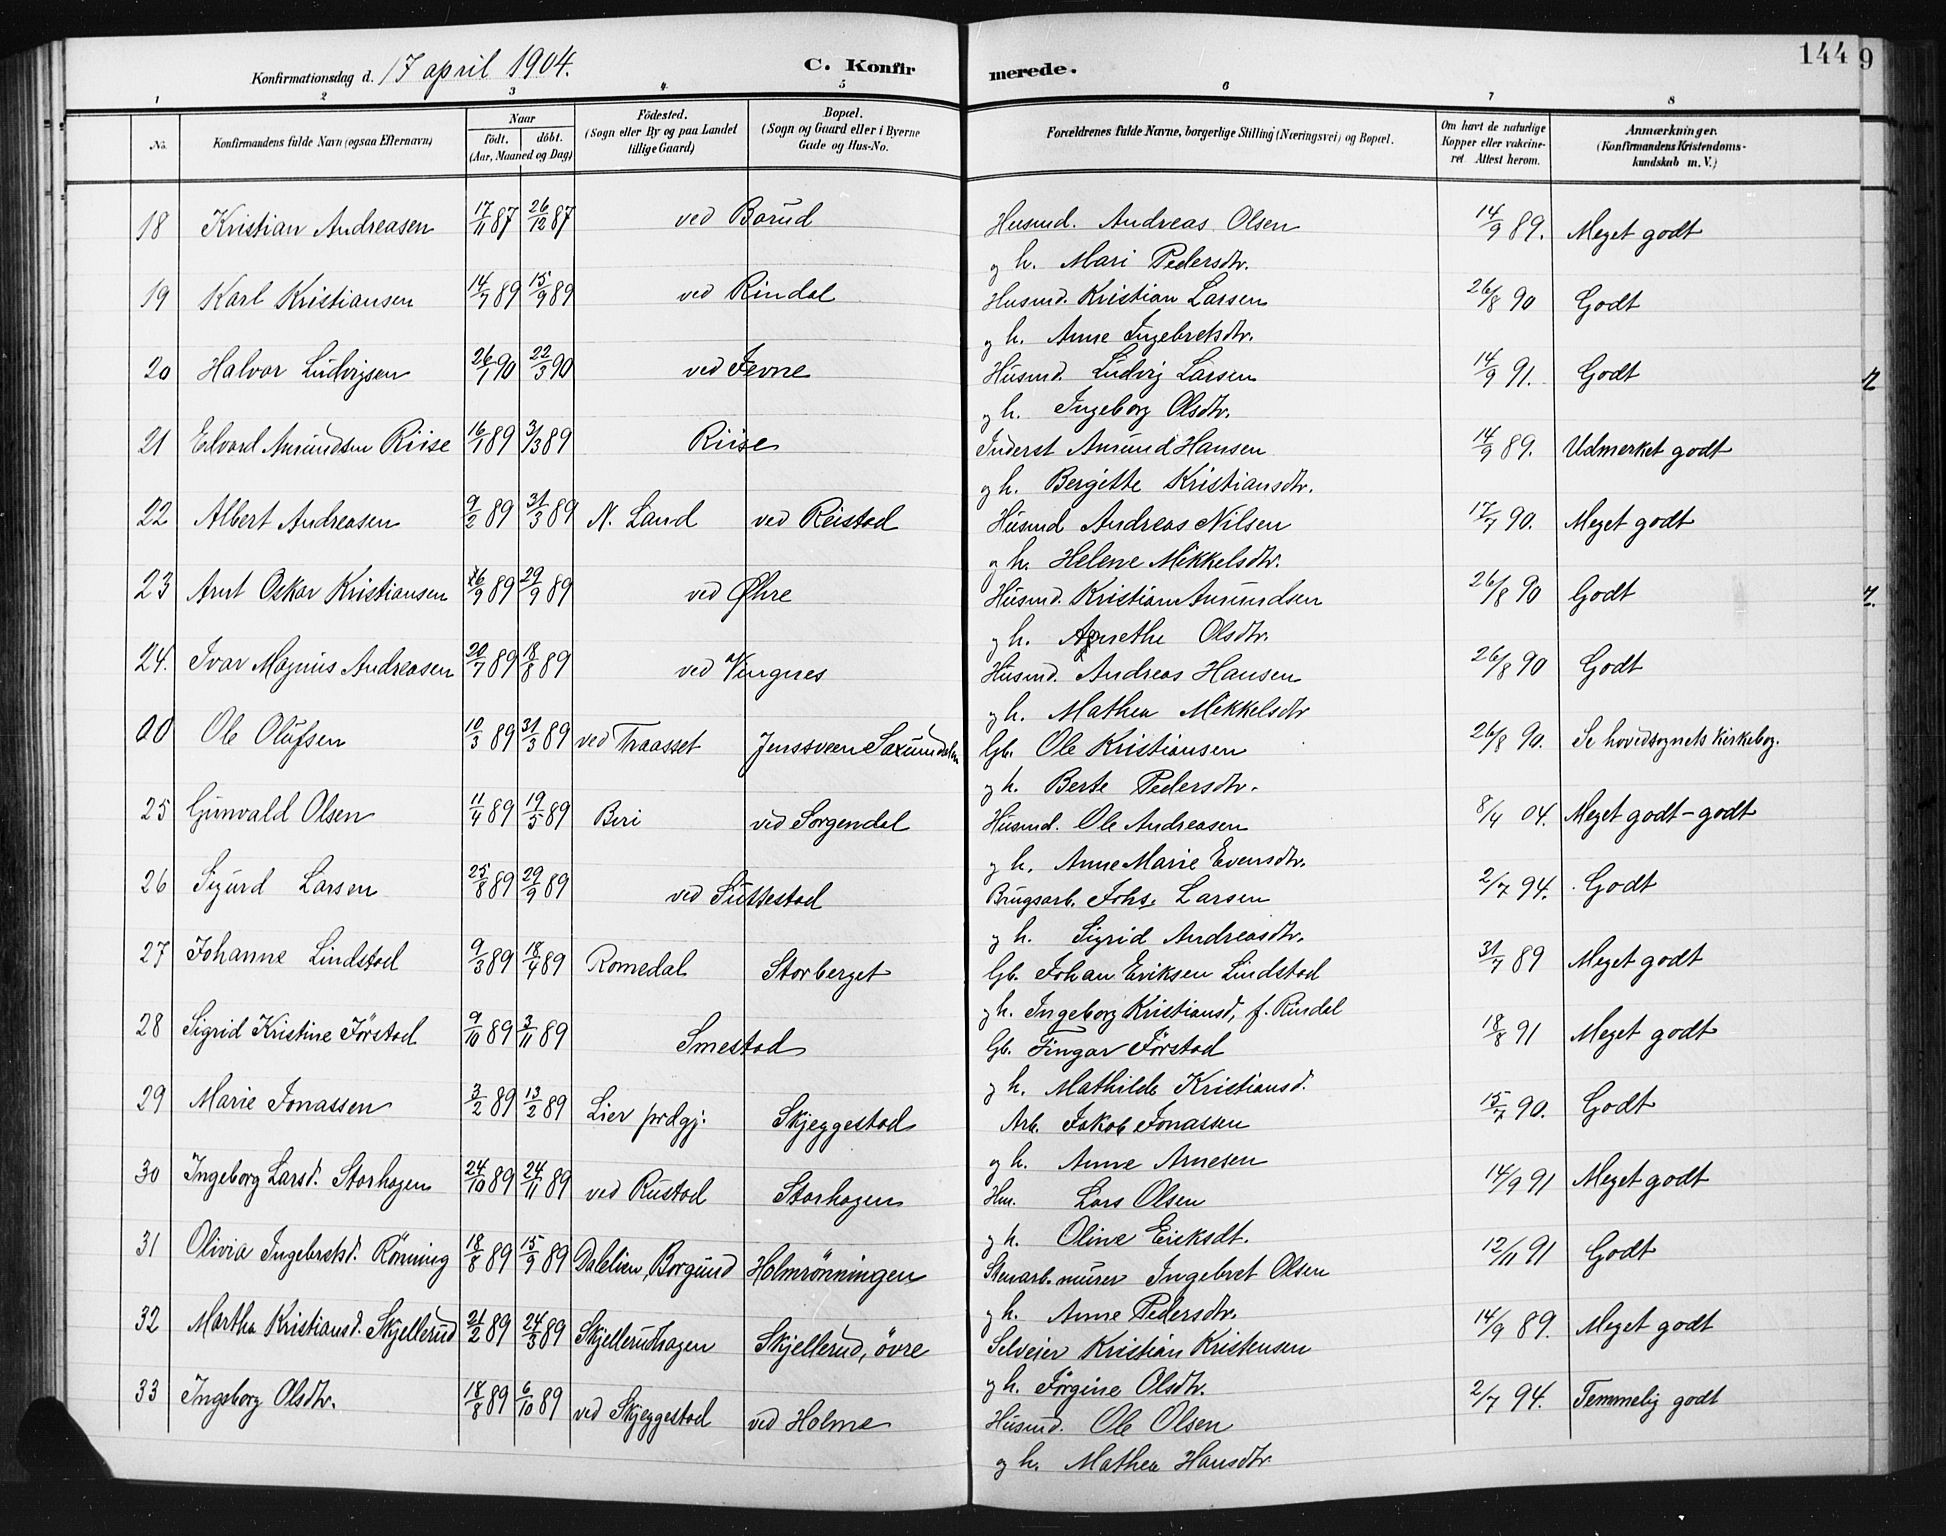 Konfirmationsdag d. 17 april 1904. C. Konfir merede. 144 9
1 2 3 4 5 6 7 8
No. Konfirmandens fulde Navn (ogsaa Efternavn) Naar født. døbt. (Aar, Maaned og Dag) Fødested. (Sogn eller By og paa Landet tillige Gaard) Bopæl. (Sogn og Gaard eller i Byerne Gade og Hus-No. Forældrenes fulde Navne, borgerlige Stilling (Næringsvei) og Bopæl. Om havt de naturlige Kopper eller vakcineret. Attest herom. Anmærkninger. (Konfirmandens Kristendomskundskab m. V.)
18 Kristian Andreasen 17/11 87 26/12 87 ved Borud Husmd. Andreas Olsen 14/9 89. Meget godt
og h. Mari Pedersdtr.
19 Karl Kristiansen 14/7 89 15/9 89 ved Rindal Husmd. Kristian Larsen 26/8 90 Godt
og h. Anne Ingebretsdtr.
20 Halvor Ludvigsen 26/1 90 22/3 90 ved Jevne Husmd. Ludvig Larsen 14/9 91. Godt
og h. Ingeborg Olsdtr.
21 Edvard Amundsen Riise 16/1 89 31/3 89 Riise Inderst Amund Hansen 14/9 89. Udmerket godt
og h. Bergitte Kristiansdtr.
22 Albert Andreasen 9/2 89 31/3 89 N. Land ved Reistad Husmd Andreas Nilsen 17/7 90. Meget godt
og h. Helene Mikkelsdtr.
23 Arnt Oskar Kristiansen 16/9 89 29/9 89 ved Øhre Husmd. Kristian Amundsen 26/8 90 Godt
og h. Agnethe Olsdtr.
24. Ivar Magnus Andreasen 20/7 89 18/8 89 ved Vingnes Husmd. Andreas Hansen 26/8 90 Godt
og h. Mathea Mikkelsdtr
00 Ole Olufsen 10/3 89 31/3 89 ved Traasset Jenssveen Saxumdalen Gb. Ole Kristiansen 26/8 90. Se hovedsognets kirkebog.
og h. Berte Pedersdtr.
25 Gunvald Olsen 11/4 89 19/5 89 Biri ved Sorgendal Husmd. Ole Andreasen 8/4 04. Meget godt - godt
og h. Anne Marie Evensdtr.
26 Sigurd Larsen 25/8 89 29/9 89 ved Suttestad Brugsarb. Johs. Larsen 2/7 94. Godt
og h. Sigrid Andreasdtr.
27 Johanne Lindstad 9/3 89 18/4 89 Romedal Storberget Gb. Johan Eriksen Lindstad 31/7 89 Meget godt
og h. Ingeborg Kristiansd, f. Rindal
28 Sigrid Kristine Førstad 9/10 89 3/11 89 Smestad Gb. Fingar Førstad 18/8 91 Meget godt
og h. Mathilde Kristiansd.
29 Marie Jonassen 3/2 89 13/2 89 Lier prdgj. Skjeggestad Arb. Jakob Jonassen 15/7 90. Godt
og h. Anne Arnesen
30 Ingeborg Larsd. Storhagen 24/10 89 24/11 89 ved Rustad Storhagen Hm. Lars Olsen 14/9 91 Meget godt
og h. Oline Eriksdt.
31 Olivia Ingebretsd. Rønning 18/8 89 15/9 89 Dalelien, Borgund Holmrønningen Stenarb. murer Ingebret Olsen 12/11 91 Godt
og h. Anne Pedersdtr.
32 Martha Kristiansd. Skjellerud 21/2 89 24/3 89 Skjellerudhagen Skjellerud, øvre Selveier Kristian Kristensen 14/9 89. Meget godt
og h. Jørgine Olsdtr.
33 Ingeborg Olsdtr. 18/8 89 6/10 89 ved Skjeggestad ved Holme Husmd. Ole Olsen 2/7 94. Temmelig godt
og h. Mathea Hansdtr